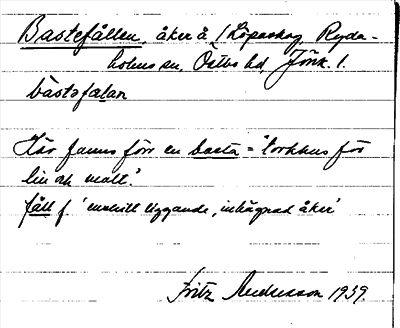 Bastefållen, åker å 1 Löpaskog, Ryda-
holms sn, Östbo hd, Jönk. l.
bàstəfalan
Här fanns förr en basta = 'torkhus för
lin och malt'.
fåll f. 'enskilt liggande, inhägnad åker'
Fritz Andersson 1939.